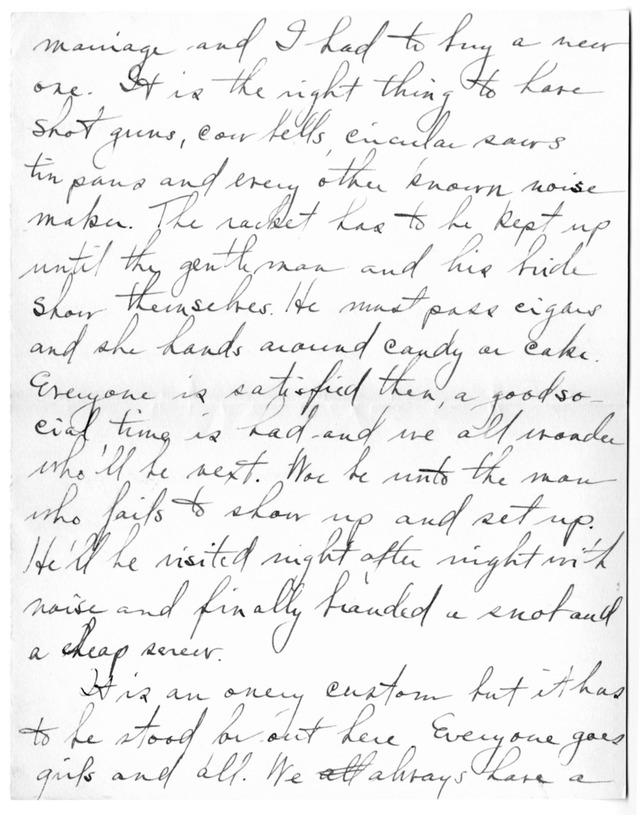 marriage and I had to buy a new
one. It is the right thing to have
shot guns, cow bells, circular saws
tin pans and every other known noise
maker. The racket has to be kept up
until the gentleman and his bride
show themselves. He must pass cigars
and she hands around candy or cake.
Everyone is satisfied then, a good so-
cial time is had and we all wonder
who'll be next. Woe be unto the man
who fails to show up and set up.
He'll be visited night after night with
noise and finally branded a snot and
a cheap screw.
It is an onery custom but it has
to be stood for out here Everyone goes
girls and all. We all always have a